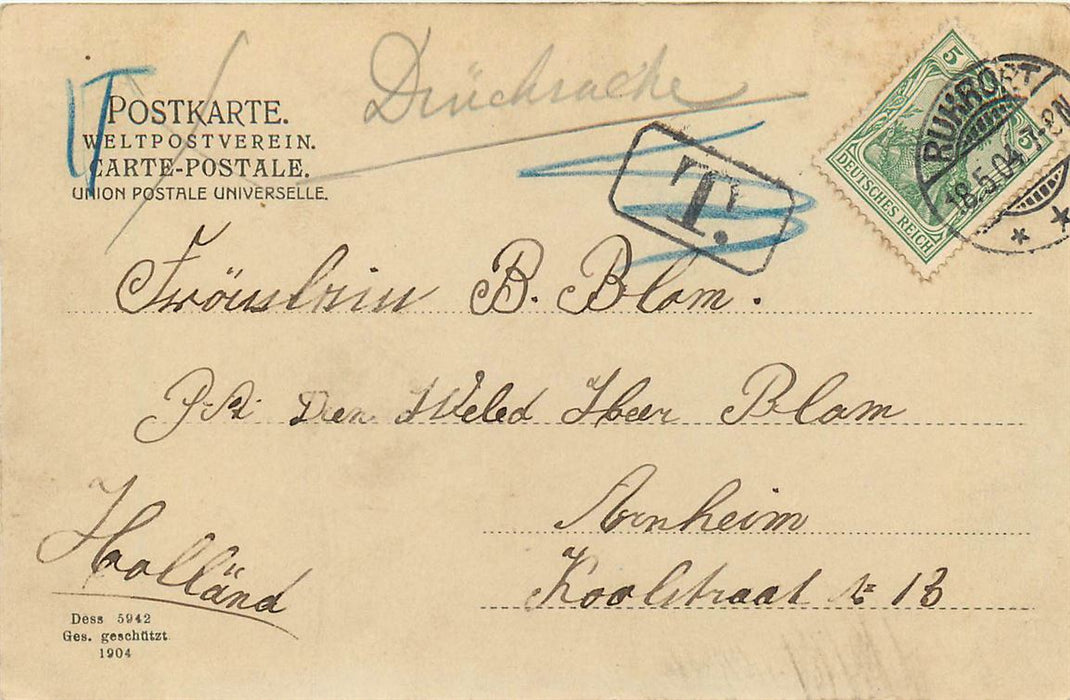 Drucksache
POSTKARTE.
WELTPOSTVEREIN.
CARTE-POSTALE.
UNION POSTALE UNIVERSELLE.
T.
5 5
DEUTSCHES REICH
RUHRORT
18.5.04. 7-8N
Fräulein B. Blom.
Den Weled Heer Blom
Arnheim
Holländ
Koolstraat № 13
Dess 5942
Ges. geschützt
1904